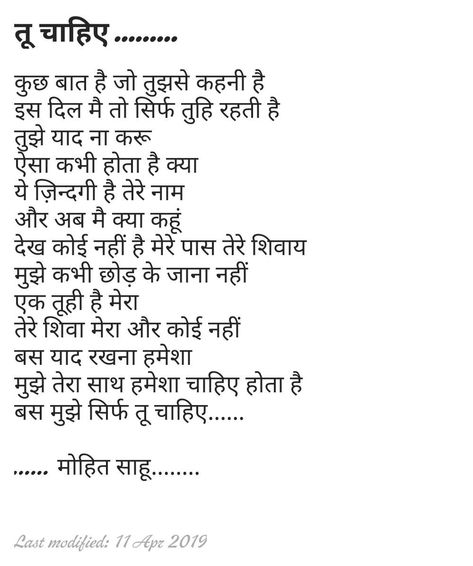 तू चाहिए .........
कुछ बात है जो तुझसे कहनी है
इस दिल मै तो सिर्फ तुहि रहती है
तुझे याद ना करू
ऐसा कभी होता है क्या
ये ज़िन्दगी है तेरे नाम
और अब मै क्या कहूं
देख कोई नहीं है मेरे पास तेरे शिवाय
मुझे कभी छोड़ के जाना नहीं
एक तूही है मेरा
तेरे शिवा मेरा और कोई नहीं
बस याद रखना हमेशा
मुझे तेरा साथ हमेशा चाहिए होता है
बस मुझे सिर्फ तू चाहिए......
...... मोहित साहू........
Last modified: 11 Apr 2019